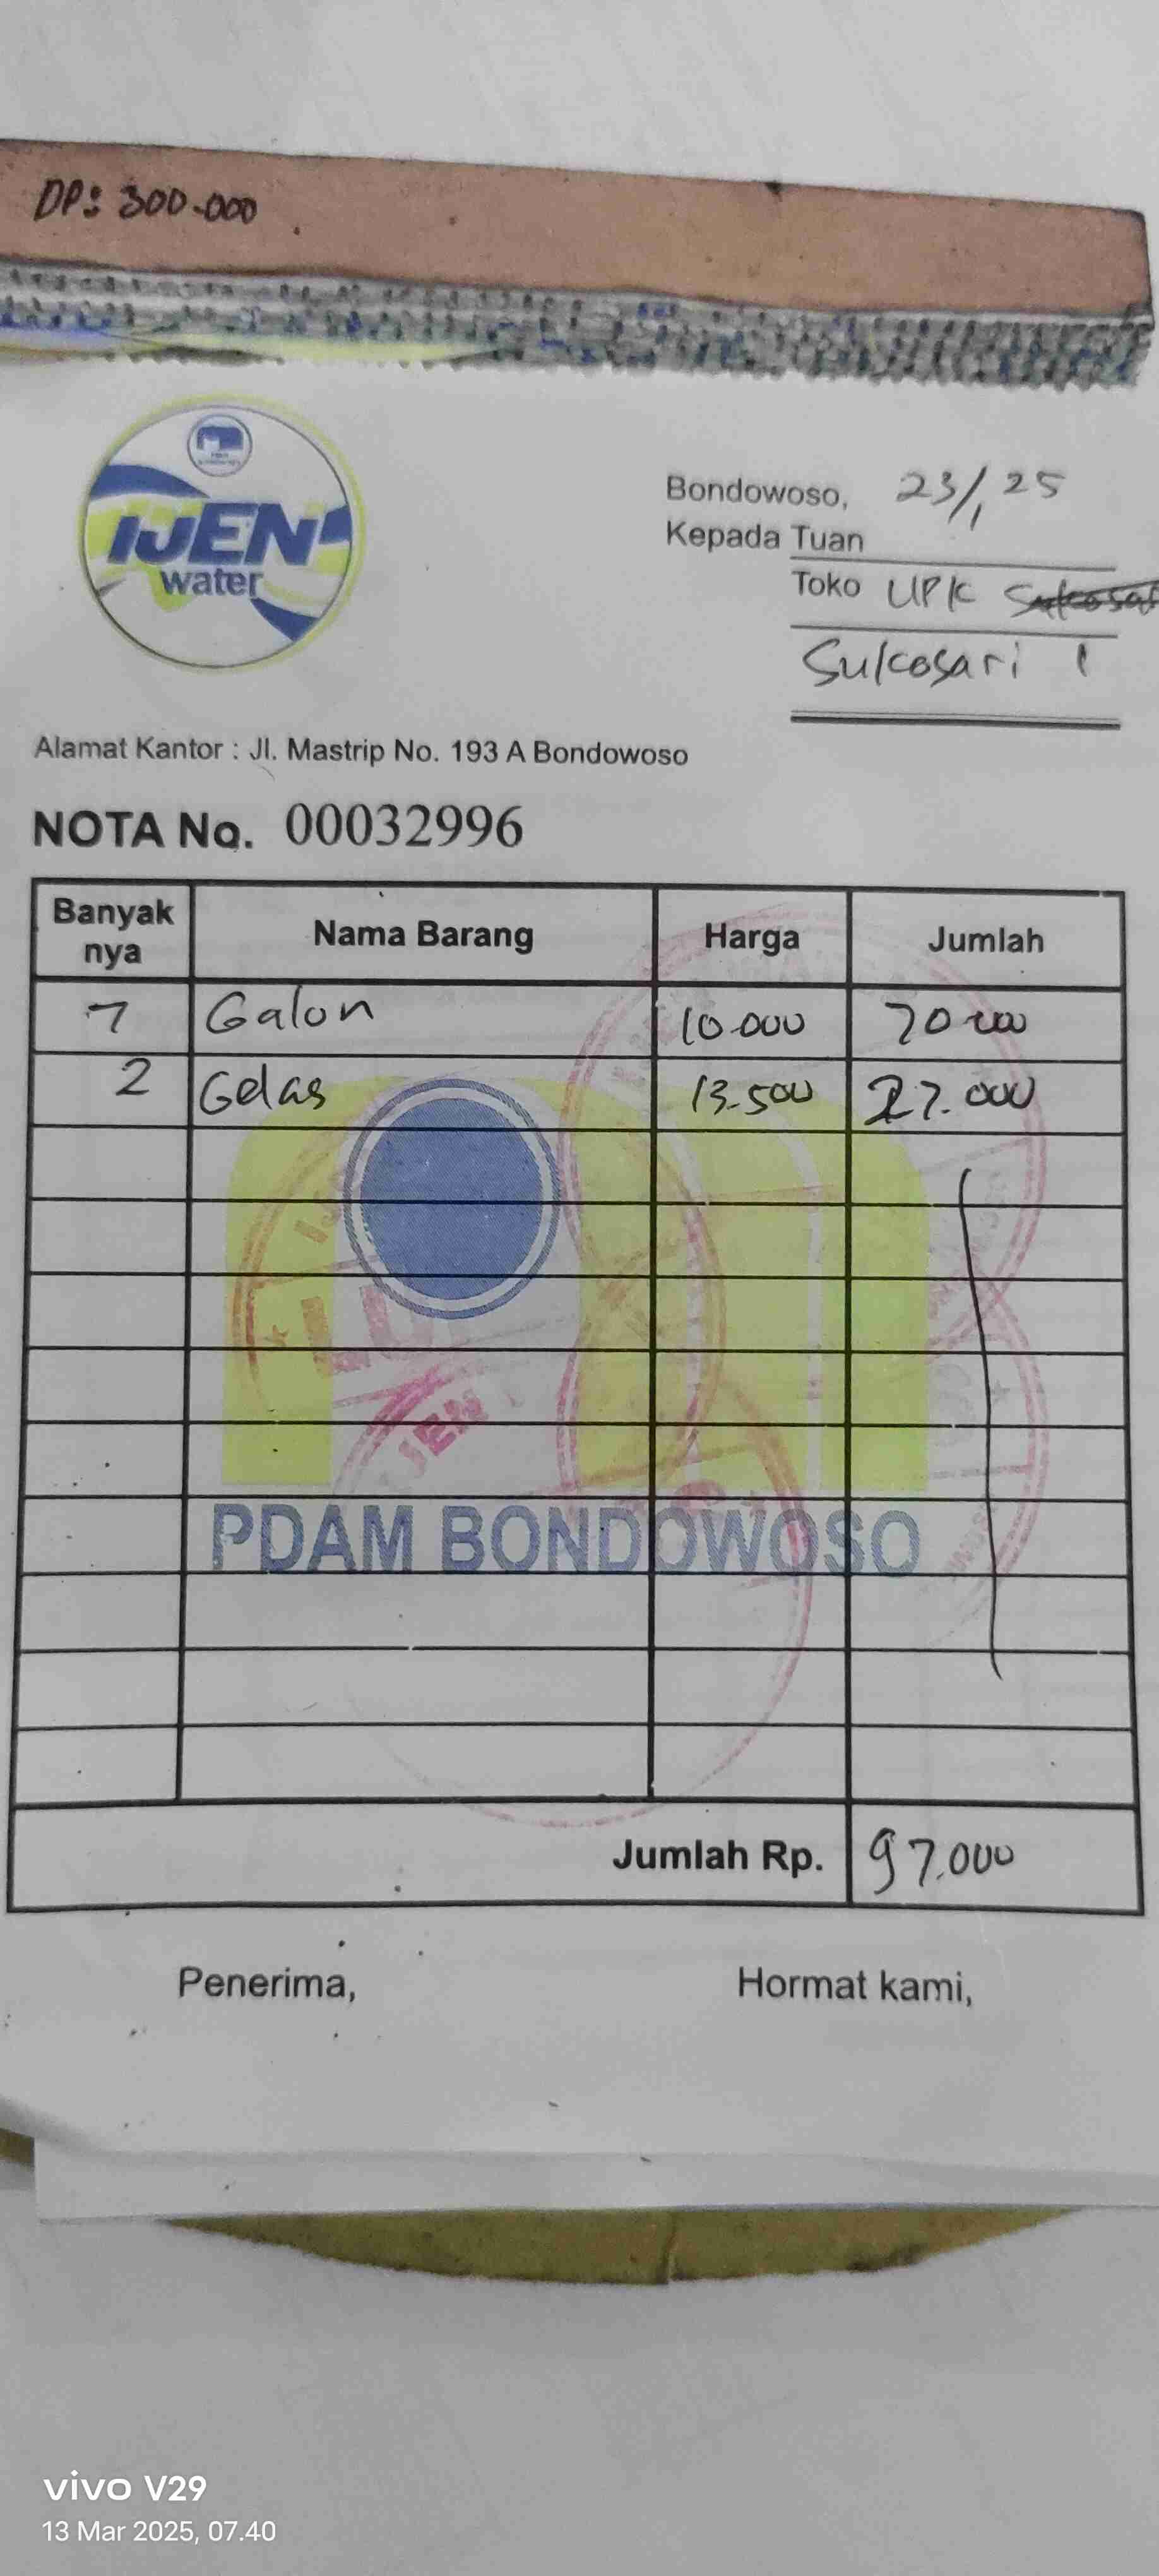 DP: 300.000
IJEN
water
Bondowoso, 23/1 25
Kepada Tuan
Toko UPK
Sukosari 1
Alamat Kantor : Jl. Mastrip No. 193 A Bondowoso
NOTA No. 00032996
Banyak nya Nama Barang Harga Jumlah
7 Galon 10.000 70.000
2 Gelas 13.500 27.000
IJEN
PDAM BONDOWOSO
Jumlah Rp. 97.000
Penerima, Hormat kami,
vivo V29
13 Mar 2025, 07.40